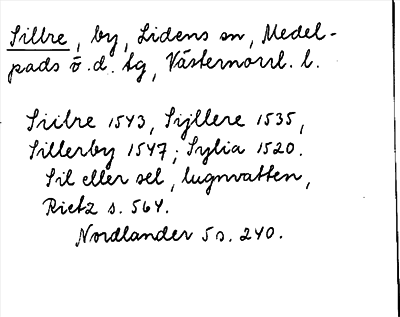 Sillre, by, Lidens sn, Medel-
pads ö. d. tg, Västernorrl. l.
Siilre 1543, Sijllere 1535,
Sillerby 1547; Sylia 1520.
Sil eller sel, lugnvatten,
Rietz s. 564.
Nordlander 5 s. 240.